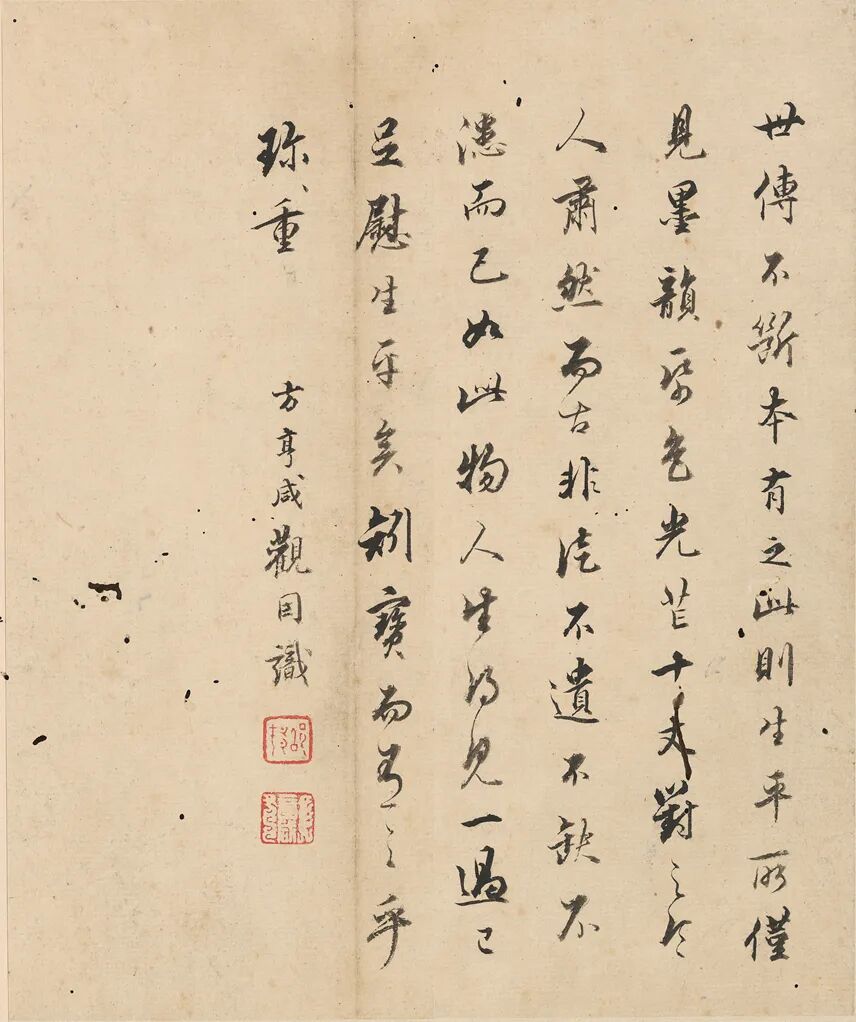 世傳不斷本有之此則生平所僅
見墨韻帋色光芒十丈對之令
人肅然而古非徒不遺不缺不
漶而已如此物人生得見一過已
足慰生平矣矧寶而有之乎
珍重
方亨咸觀因識
邵村